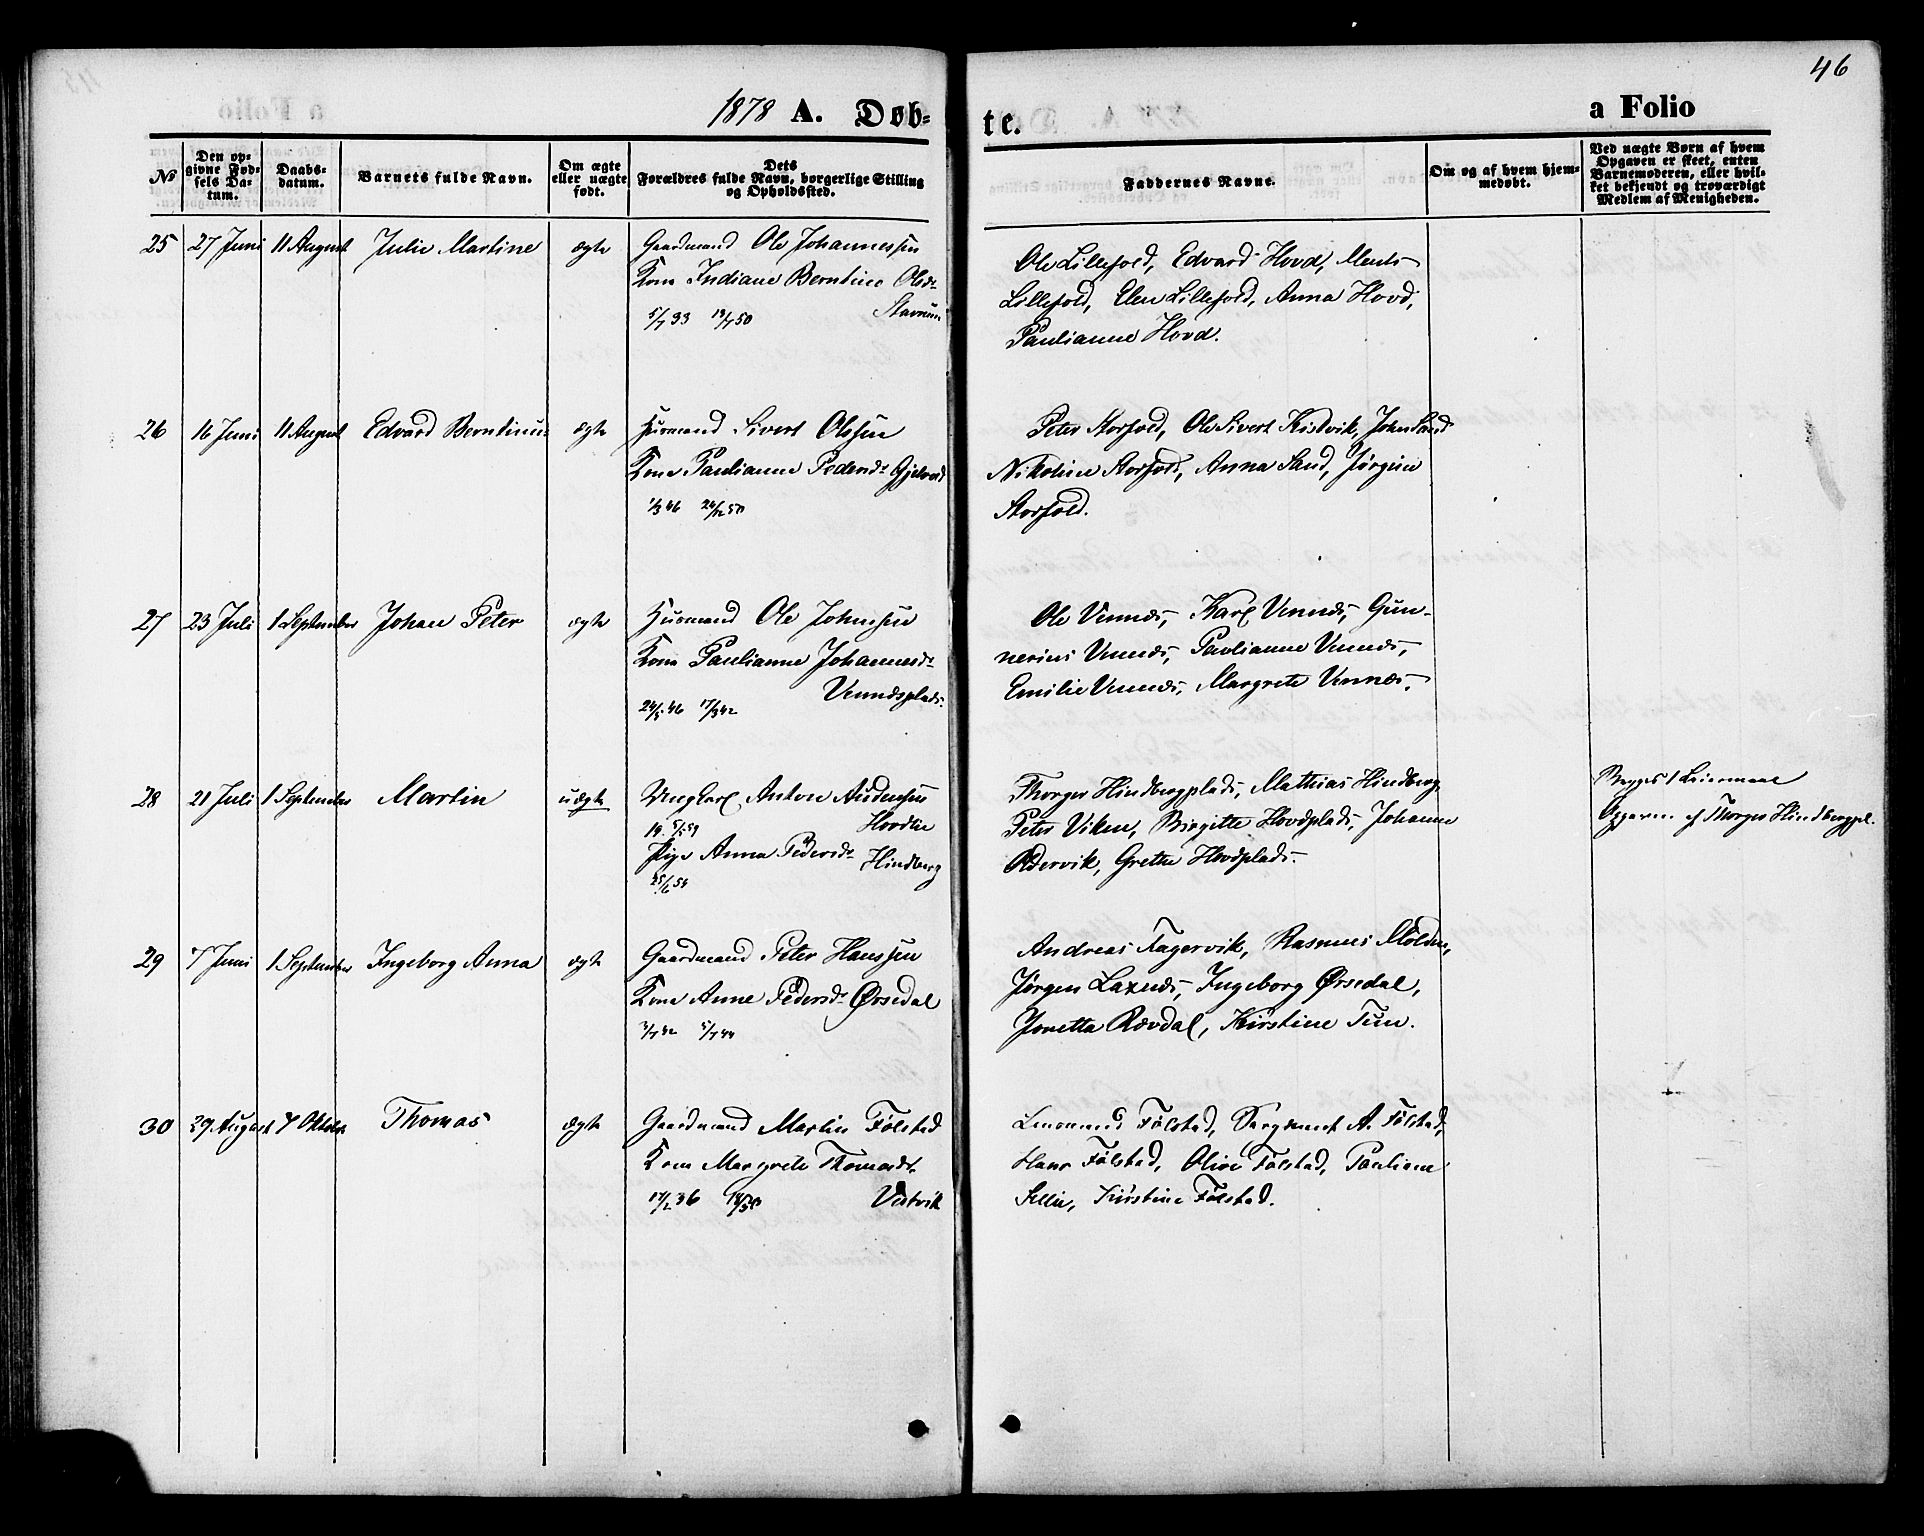 46
1878 A. Døb-
te.
a Folio
No
Den op-
givne Fød-
sels Da-
tum.
Daabs-
datum.
Barnets fulde Navn.
Om ægte
eller uægte
født.
Dets
Forældres fulde Navn, borgerlige Stilling
og Opholdssted.
Faddernes Navne.
Om og af hvem hjem-
medøbt.
Ved uægte Børn af hvem
Opgaven er skeet, enten
Barnemoderen, eller hvil-
ket bekjendt og troværdigt
Medlem af Menigheden.
25 27 Juni 11 August Julie Martine ægte Gaardmand Ole Johannessen
Kone Indiane Berntine Olsdr
Stavnum
5/7 33
Ole Lillefold, Edvard Hovd, Ments
Lillefold, Elen Lillefold, Anna Hovd,
Paulianne Hovd.
26 16 Juni 11 August Edvard Berntinus ægte Husmand Sivert Olssen
Kone Paulianne Pedersdr Gjelvold
1/3 46
Peter Storfold, Ole Sivert Kistvik, John Sand
Nikoline Storfold, Anna Sand, Jørgine
Storfold.
27 23 Juli 1 September Johan Peter ægte Husmand Ole Johnssen
Kone Paulianne Johannesdr
Vennesplads.
24/5 46 17/3 42
Ole Vennes, Karl Vennes, Gun-
nerius Vennes, Paulianne Vennes,
Emilie Vennes, Margrete Vennes.
28 21 Juli 1 September Martin uægte Ungkarl Anton Andersen
Hovdlie
Pige Anna Pedersdr Hindberg
Thorger Hindbergplads, Mathias Hindberg
Peter Viken, Birgitte Hovdplads, Johanne
Oldervik, Grethe Hovdplads.
Begges 1 Leiermaal
Opgaven af Thorger Hindbergpl.
29 7 Juni 1 September Ingeborg Anna ægte Gaardmand Peter Hanssen
Kone Anne Pedersdr Ørsedal
3/7 42 5/7 44
Andreas Fagervik, Rasmus Mølden,
Jørgen Laxnes, Ingeborg Ørsedal,
Jonetta Rævdal, Kirstine Tun.
30 29 August 7 Oktober Thomas ægte Gaardmand Martin Følstad
Kone Margrete Thomasdr
Vestvik
17/2 36
Følstad, Sergeant A. Følstad,
Hans Følstad, Oline Følstad, Pauline
Selli, Kirstine Følstad.